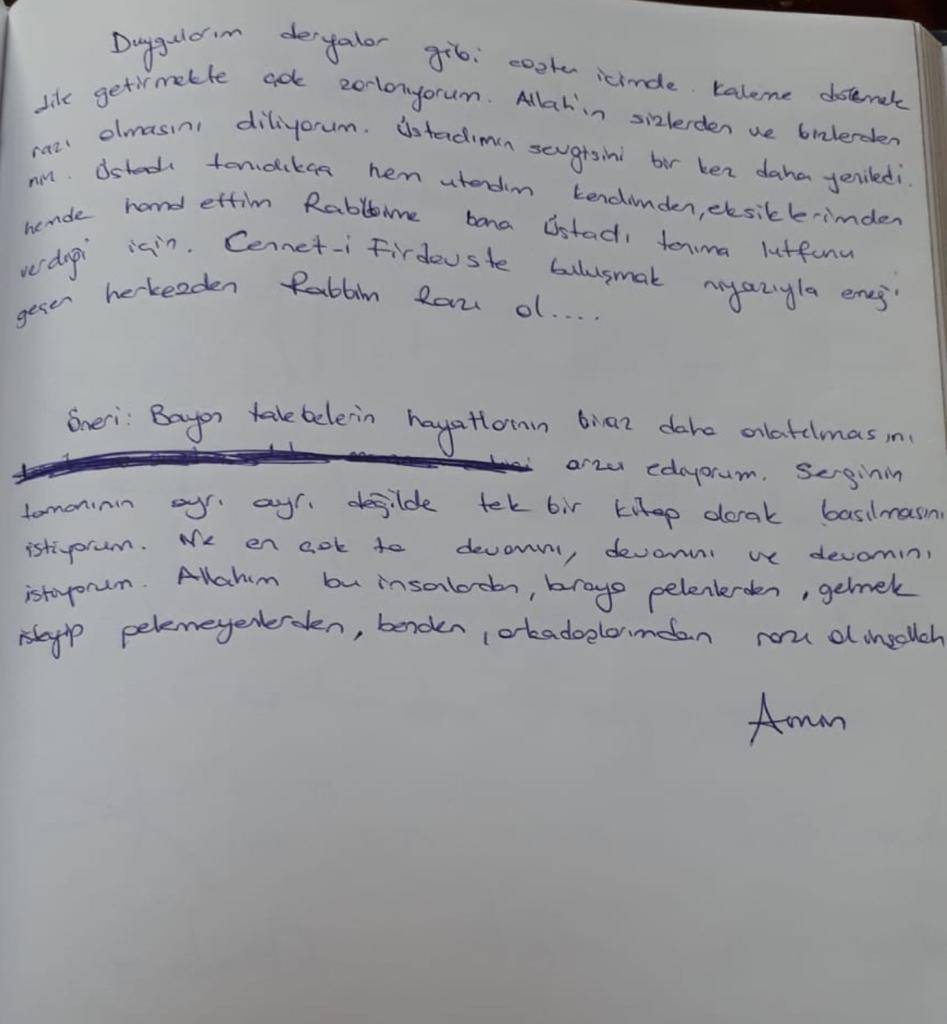 Duygularım deryalar gibi coştu içimde. Kaleme dökmek
dile getirmekte çok zorlanıyorum. Allah'ın sizlerden ve bizlerden
razı olmasını diliyorum. Üstadımın sevgisini bir kez daha yeniledi.
nm. Üstadı tanıdıkça hem utandım kendimden, eksiklerimden
hemde hamd ettim Rabbime bana Üstadı tanıma lutfunu
verdiği için. Cennet-i Firdevste buluşmak niyazıyla emeği
geçen herkezden Rabbim Razı ol....
Öneri: Bayan talebelerin hayatlarının biraz daha anlatılmasını
arzu ediyorum. Serginin
tamamının ayrı ayrı değilde tek bir kitap olarak basılmasını
istiyorum. Ve en çok ta devamını, devamını ve devamını
istiyorum. Allahım bu insanlardan, buraya gelenlerden, gelmek
isteyip gelemeyenlerden, benden, arkadaşlarımdan razı ol inşallah
Amin